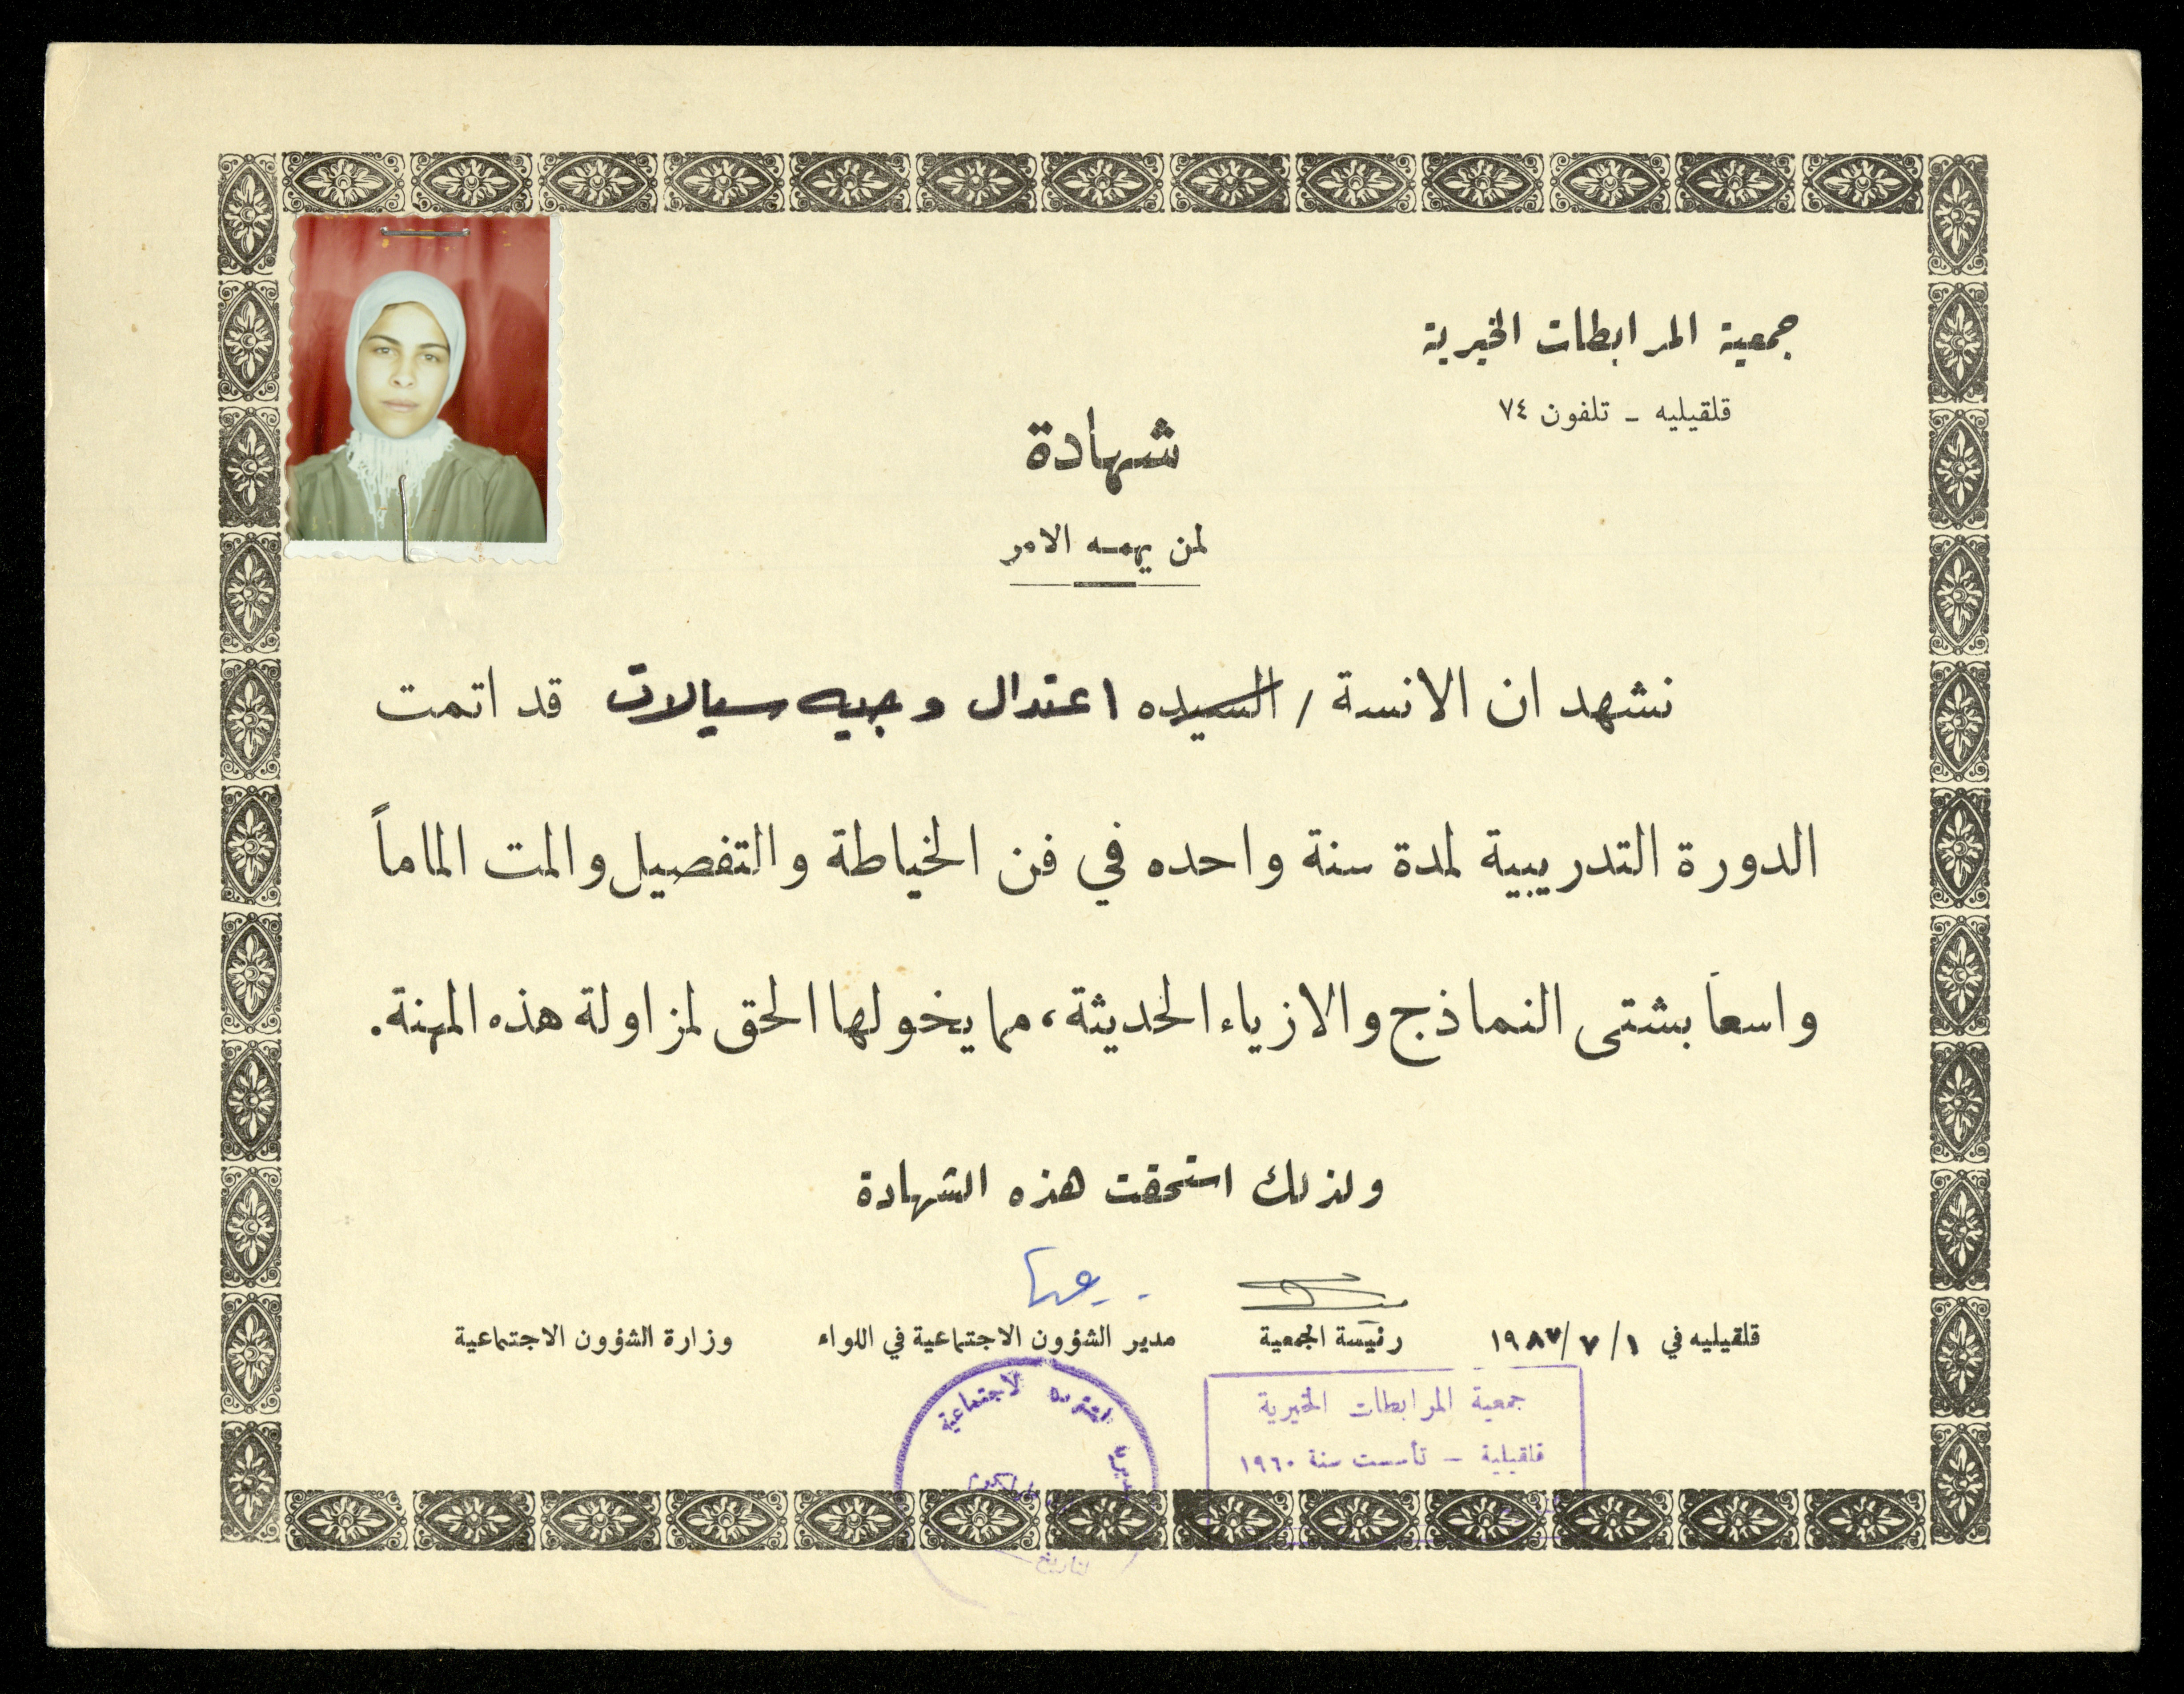 جمعية المرابطات الخيرية
قلقيليه - تلفون ٧٤
شهادة
لمن يهمه الامر
نشهد ان الانسة / السيده اعتدال وجيه سيالات قد اتمت
الدورة التدريبية لمدة سنة واحده في فن الخياطة والتفصيل والمت الماماً
واسعاً بشتى النماذج والازياء الحديثة، مما يخولها الحق لمزاولة هذه المهنة.
ولذلك استحقت هذه الشهادة
قلقيليه في ١ / ٧ / ١٩٨٧ رئيسة الجمعية مدير الشؤون الاجتماعية في اللواء وزارة الشؤون الاجتماعية
جمعية المرابطات الخيرية
قلقيلية - تأسست سنة ١٩٦٠
الاجتماعية
التاريخ